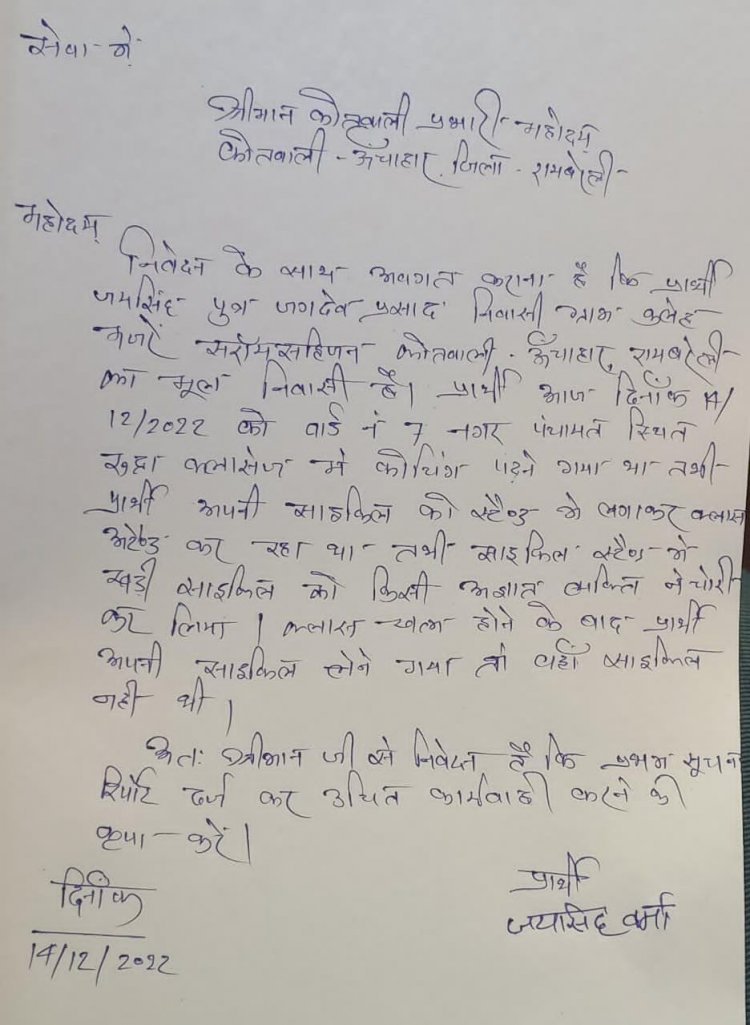 सेवा में
श्रीमान कोतवाली प्रभारी महोदय
कोतवाली - ऊँचाहार, जिला - रायबरेली
महोदय
निवेदन के साथ अवगत कराना है कि प्रार्थी
जयसिंह पुत्र जगदेव प्रसाद निवासी ग्राम कुलेह
मजरे सरायसहिजन कोतवाली - ऊँचाहार, रायबरेली
का मूल निवासी है। प्रार्थी आज दिनाँक 14/
12/2022 को वार्ड नं 7 नगर पंचायत स्थित
रुद्रा क्लासेज मे कोचिंग पढ़ने गया था तभी
प्रार्थी अपनी साइकिल को स्टैण्ड मे लगाकर क्लास
अटैण्ड कर रहा था तभी साइकिल स्टैण्ड मे
खड़ी साइकिल को किसी अज्ञात व्यक्ति ने चोरी
कर लिया। क्लास खत्म होने के बाद प्रार्थी
अपनी साइकिल लेने गया तो वहाँ साइकिल
नही थी।
अतः श्रीमान जी से निवेदन है कि प्रथम सूचना
रिपोर्ट दर्ज कर उचित कार्यवाही करने की
कृपा करें।
प्रार्थी
जयसिंह वर्मा
दिनाँक
14/12/2022